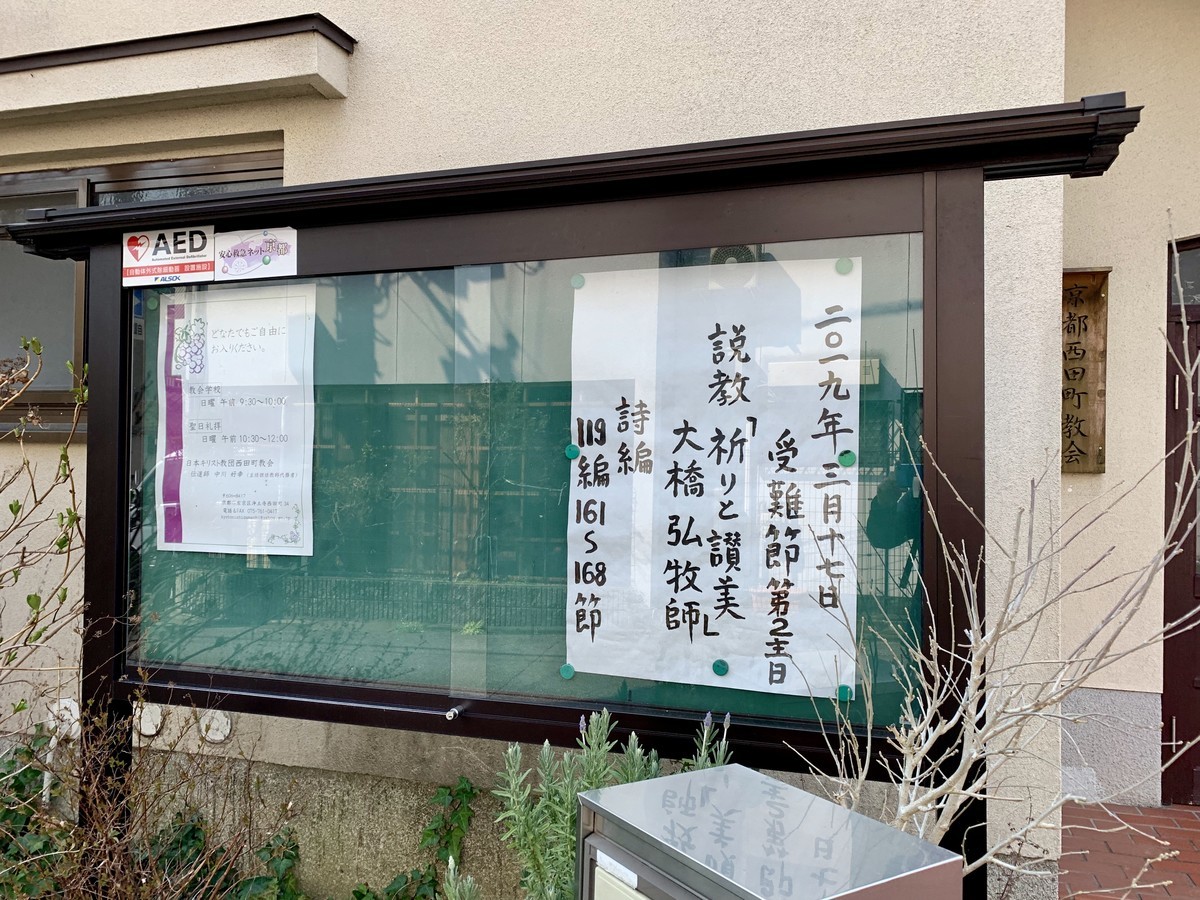 AED
Automated External Defibrillator
【自動体外式除細動器 設置施設】
ALSOK
安心救急ネット京都
どなたでもご自由に
お入りください。
教会学校
日曜 午前 9:30～10:00
聖日礼拝
日曜 午前 10:30～12:00
日本キリスト教団西田町教会
二〇一九年三月十七日
受難節第2主日
説教「祈りと讃美」
大橋弘牧師
詩編
119編161～168節
京都西田町教会